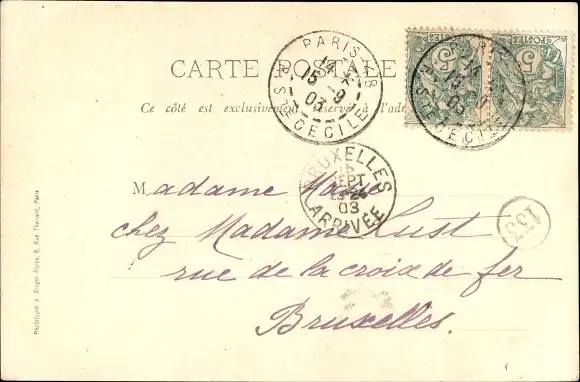 CARTE POSTALE
Ce côté est exclusivement réservé à l'adr
PARIS 18
14
15 9
03
R. STE CECILE
POSTES
5
POSTES
5
BRUXELLES
SEPT
03
ARRIVÉE
Madame Marie
chez Madame Lust
rue de la croix de fer
Bruxelles.
133
Phototypie A. Breger frères, 9, Rue Thénard, Paris